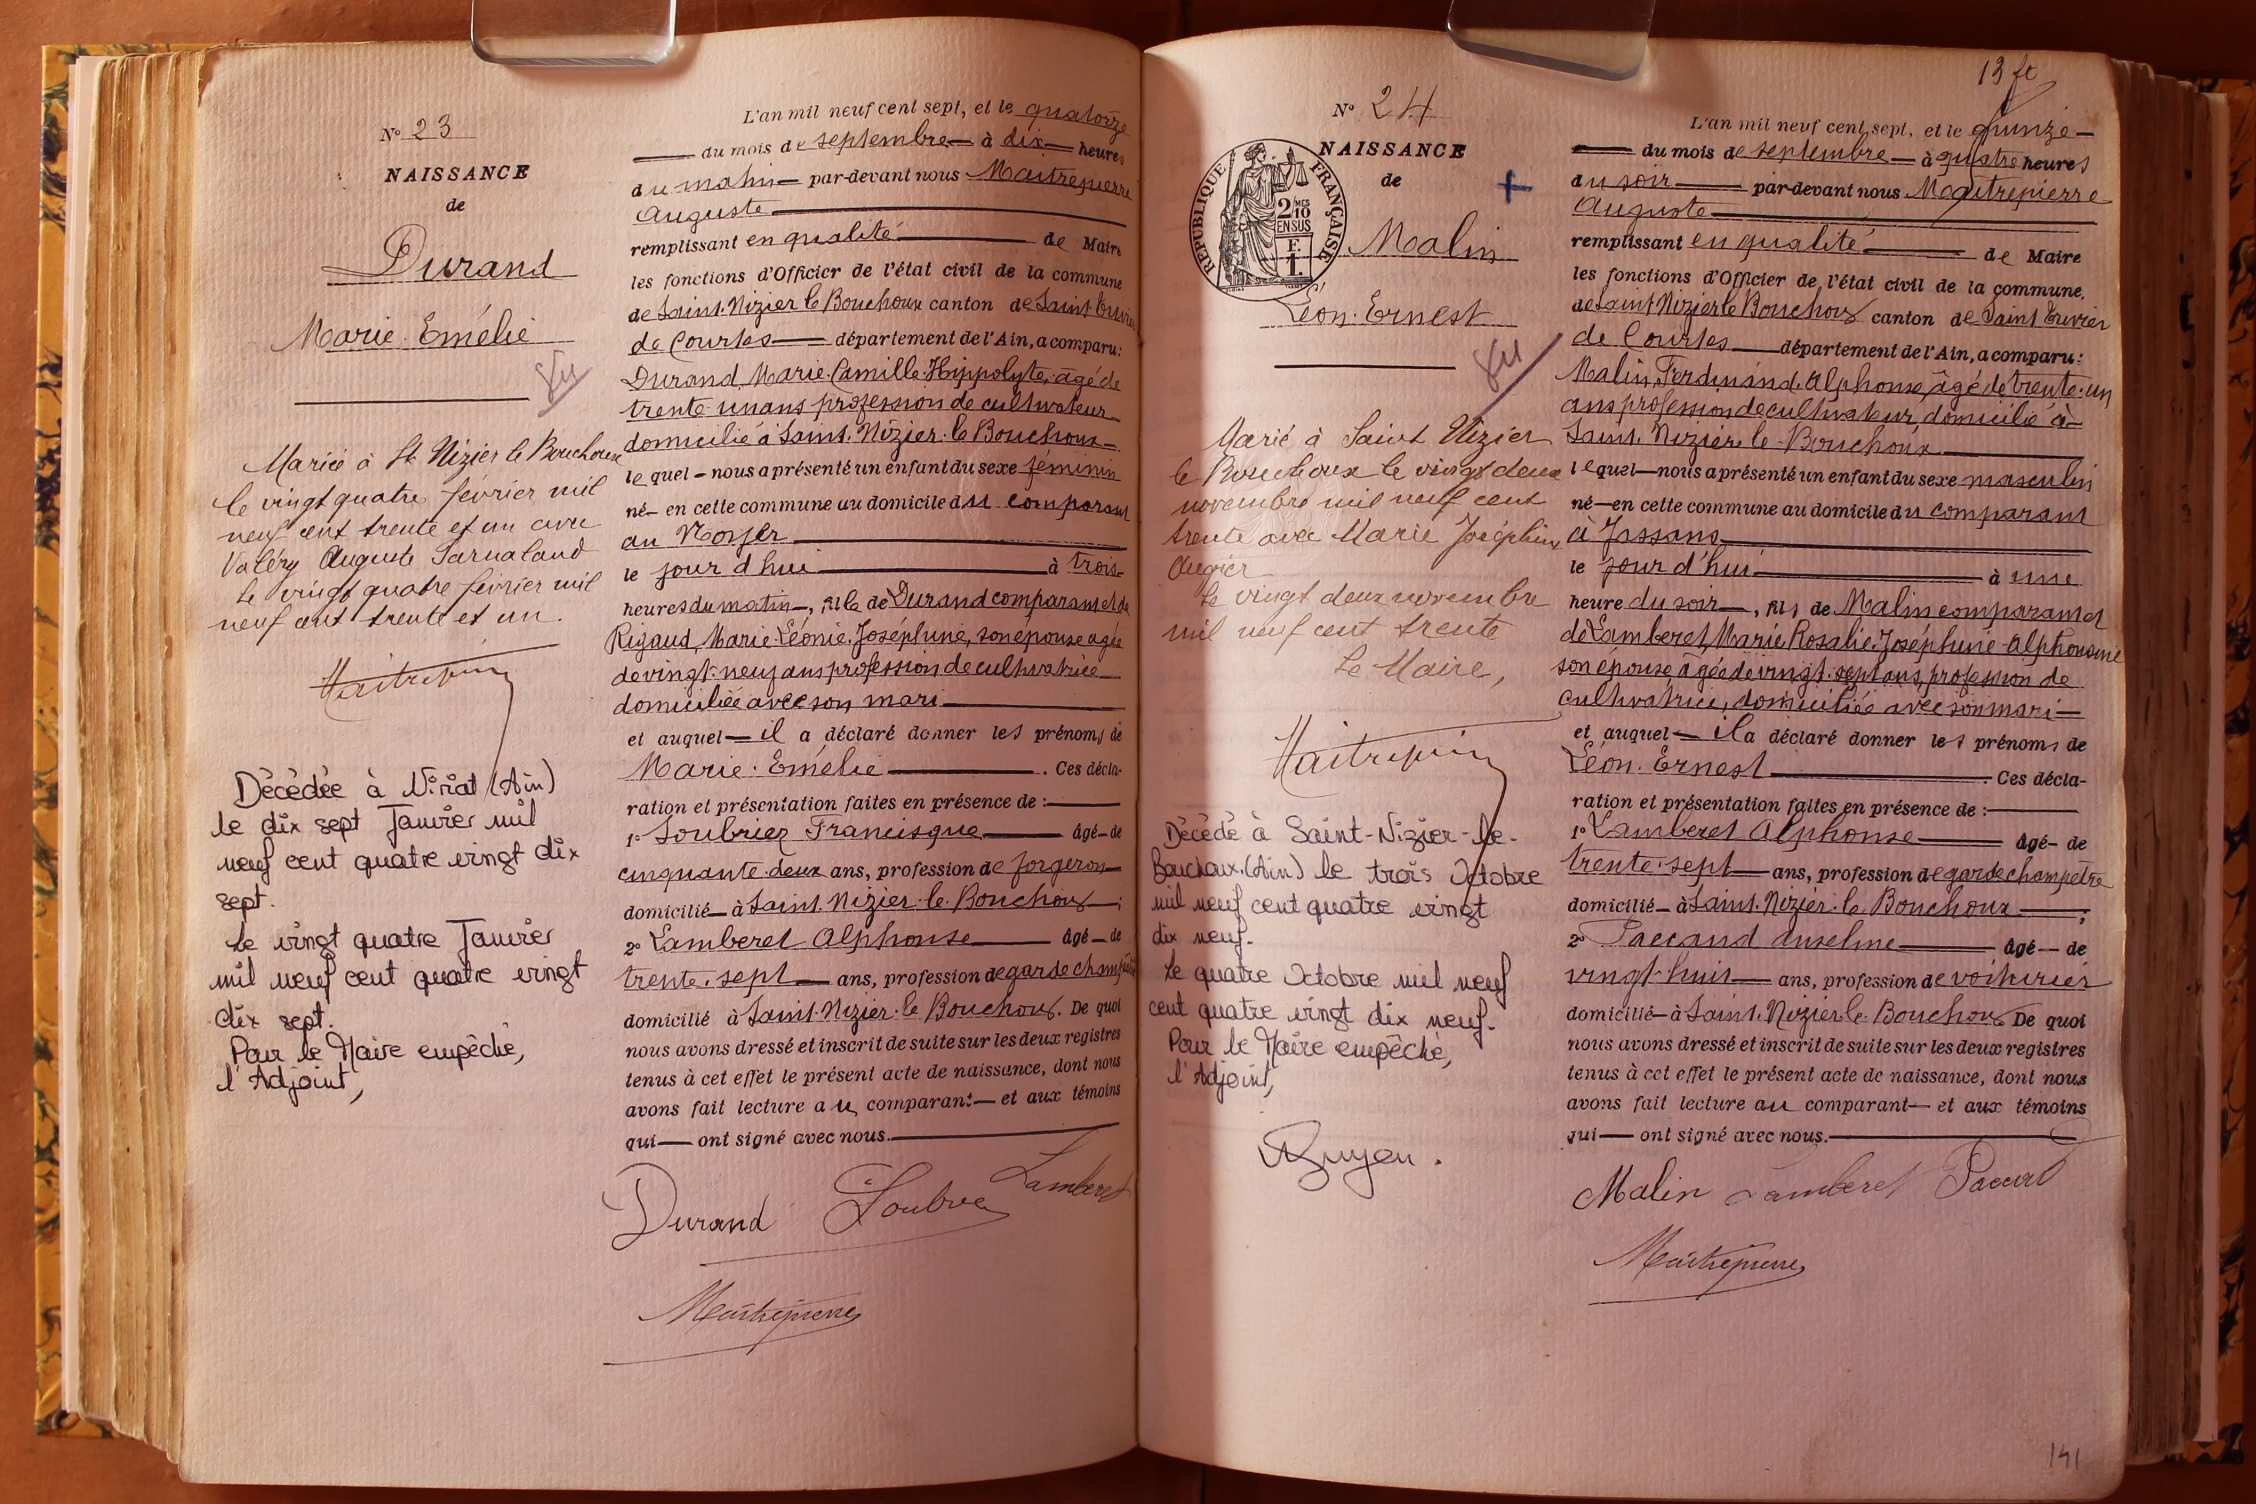 N° 23
NAISSANCE
de
Durand
Marie Emélie
Mariée à St Nizier le Bouchoux
le vingt quatre février mil
neuf cent trente et un avec
Valéry Auguste
Le vingt quatre février mil
neuf cent trente et un.
Maitrepierre
Décédée à Viriat (Ain)
le dix sept Janvier mil
neuf cent quatre vingt dix
sept.
Le vingt quatre Janvier
mil neuf cent quatre vingt
dix sept.
Pour le Maire empêché,
l'Adjoint,
L'an mil neuf cent sept, et le quatorze
du mois de septembre à dix heures
du matin par-devant nous Maitrepierre
Auguste
remplissant en qualité de Maire
les fonctions d'Officier de l'état civil de la commune
de Saint-Nizier le Bouchoux canton de Saint Trivier
de Courtes département de l'Ain, a comparu:
Durand, Marie Camille Hippolyte, âgé de
trente un ans profession de cultivateur
domicilié à Saint-Nizier-le Bouchoux
lequel nous a présenté un enfant du sexe féminin
né en cette commune au domicile du comparant
au
le jour d'hui à trois
heures du matin, fille de Durand comparant et de
Rigaud, Marie Léonie Joséphine, son épouse agée
de vingt-neuf ans profession de cultivatrice
domiciliée avec son mari
et auquel il a déclaré donner les prénoms de
Marie Emélie. Ces décla-
ration et présentation faites en présence de :
1° Loubriez Francisque âgé de
cinquante-deux ans, profession de forgeron
domicilié à Saint-Nizier-le-Bouchoux;
2° Lamberet Alphonse âgé de
trente-sept ans, profession de garde champêtre
domicilié à Saint-Nizier-le Bouchoux. De quoi
nous avons dressé et inscrit de suite sur les deux registres
tenus à cet effet le présent acte de naissance, dont nous
avons fait lecture au comparant et aux témoins
qui ont signé avec nous.
Durand Loubriez Lamberet
Maitrepierre
13 ft
N° 24
NAISSANCE
de
RÉPUBLIQUE FRANÇAISE
2 MES
10
EN SUS
F.
1.
Malin
Léon Ernest
Marié à Saint Nizier
le Bouchoux le vingt deux
novembre mil neuf cent
trente avec Marie Joséphine
Le vingt deux novembre
mil neuf cent trente
Le Maire,
Maitrepierre
Décédé à Saint-Nizier-le-
Bouchoux (Ain) le trois Octobre
mil neuf cent quatre vingt
dix neuf.
Le quatre Octobre mil neuf
cent quatre vingt dix neuf.
Pour le Maire empêché,
l'Adjoint,
L'an mil neuf cent sept, et le quinze
du mois de septembre à quatre heures
du soir par-devant nous Maitrepierre
Auguste
remplissant en qualité de Maire
les fonctions d'Officier de l'état civil de la commune
de Saint Nizier le Bouchoux canton de Saint Trivier
de Courtes département de l'Ain, a comparu:
Malin, Ferdinand Alphonse, âgé de trente-un
ans profession de cultivateur, domicilié à
Saint-Nizier-le-Bouchoux
lequel nous a présenté un enfant du sexe masculin
né en cette commune au domicile du comparant
à Jassans
le jour d'hui à une
heure du soir, fils de Malin comparant et
de Lamberet, Marie Rosalie Joséphine Alphonsine
son épouse âgée de vingt-sept ans, profession de
cultivatrice, domiciliée avec son mari
et auquel il a déclaré donner les prénoms de
Léon Ernest. Ces décla-
ration et présentation faites en présence de :
1° Lamberet Alphonse âgé de
trente-sept ans, profession de garde champêtre
domicilié à Saint-Nizier-le Bouchoux;
2° Paccand Anselme âgé de
vingt-huit ans, profession de voiturier
domicilié à Saint-Nizier-le-Bouchoux De quoi
nous avons dressé et inscrit de suite sur les deux registres
tenus à cet effet le présent acte de naissance, dont nous
avons fait lecture au comparant et aux témoins
qui ont signé avec nous.
Malin Lamberet Paccand
Maitrepierre
141